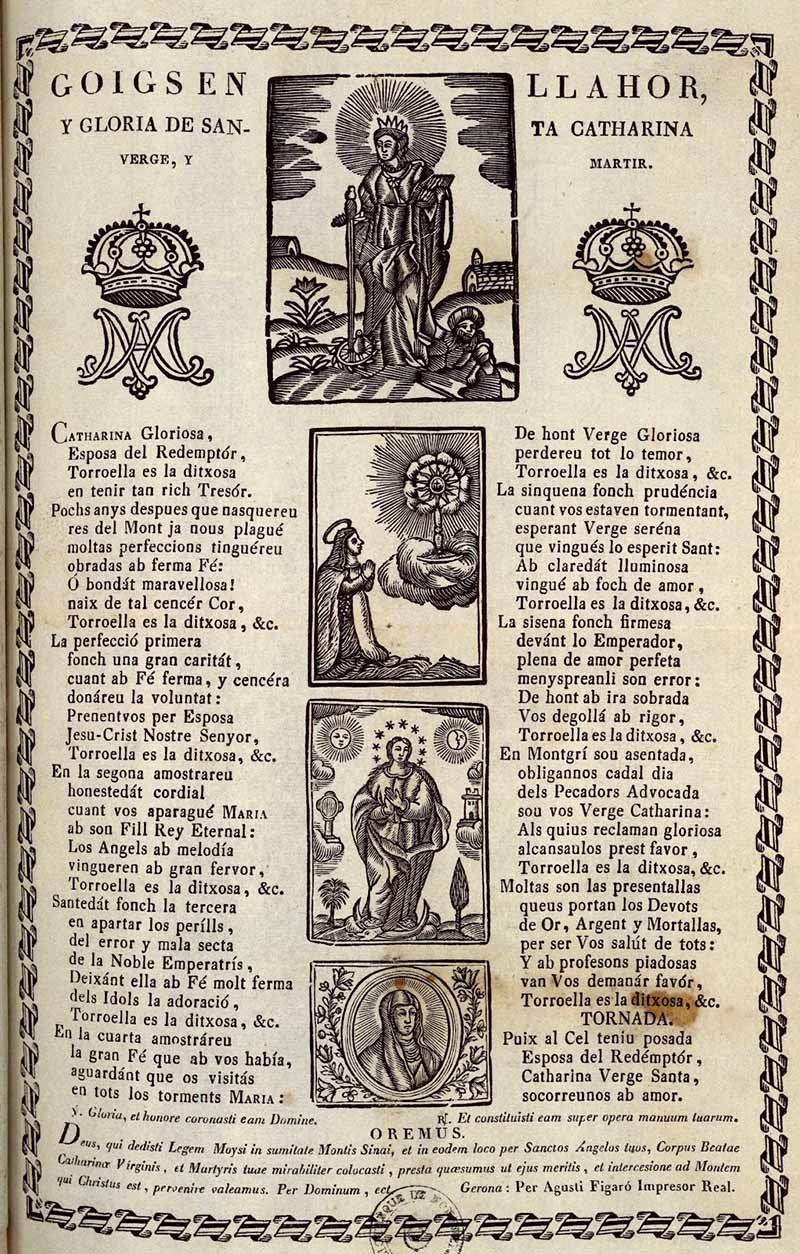 GOIGS EN LLAHOR,
Y GLORIA DE SAN- TA CATHARINA
VERGE, Y MARTIR.
CATHARINA Gloriosa,
Esposa del Redemptór,
Torroella es la ditxosa
en tenir tan rich Tresór.
Pochs anys despues que nasquereu
res del Mont ja nous plagué
moltas perfeccions tinguéreu
obradas ab ferma Fé:
Ó bondát maravellosa!
naix de tal cencér Cor,
Torroella es la ditxosa, &c.
La perfecció primera
fonch una gran caritát,
cuant ab Fé ferma, y cencéra
donáreu la voluntat:
Prenentvos per Esposa
Jesu-Crist Nostre Senyor,
Torroella es la ditxosa, &c.
En la segona amostrareu
honestedát cordial
cuant vos aparagué MARIA
ab son Fill Rey Eternal:
Los Angels ab melodía
vingueren ab gran fervor,
Torroella es la ditxosa, &c.
Santedát fonch la tercera
en apartar los perílls,
del error y mala secta
de la Noble Emperatrís,
Deixánt ella ab Fé molt ferma
dels Idols la adoració,
Torroella es la ditxosa, &c.
En la cuarta amostráreu
la gran Fé que ab vos había,
aguardánt que os visitás
en tots los torments MARIA:
De hont Verge Gloriosa
perdereu tot lo temor,
Torroella es la ditxosa, &c.
La sinquena fonch prudéncia
cuant vos estaven tormentant,
esperant Verge seréna
que vingués lo esperit Sant:
Ab claredát lluminosa
vingué ab foch de amor,
Torroella es la ditxosa, &c.
La sisena fonch firmesa
devánt lo Emperador,
plena de amor perfeta
menyspreanli son error:
De hont ab ira sobrada
Vos degollá ab rigor,
Torroella es la ditxosa, &c.
En Montgrí sou asentada,
obligannos cadal dia
dels Pecadors Advocada
sou vos Verge Catharina:
Als quius reclaman gloriosa
alcansaulos prest favor,
Torroella es la ditxosa, &c.
Moltas son las presentallas
queus portan los Devots
de Or, Argent y Mortallas,
per ser Vos salút de tots:
Y ab profesons piadosas
van Vos demanár favór,
Torroella es la ditxosa, &c.
TORNADA.
Puix al Cel teniu posada
Esposa del Redémptór,
Catharina Verge Santa,
socorreunos ab amor.
℣. Gloria, et honore coronasti eam Domine. ℟. Et constituisti eam super opera manuum tuarum.
OREMUS.
Deus, qui dedisti Legem Moysi in sumitate Montis Sinai, et in eodem loco per Sanctos Angelos tuos, Corpus Beatae
Catharinæ Virginis, et Martyris tuae mirabiliter colocasti, presta quæsumus ut ejus meritis, et intercesione ad Montem
qui Christus est, pervenire valeamus. Per Dominum, ect. Gerona: Per Agusti Figaró Impresor Real.